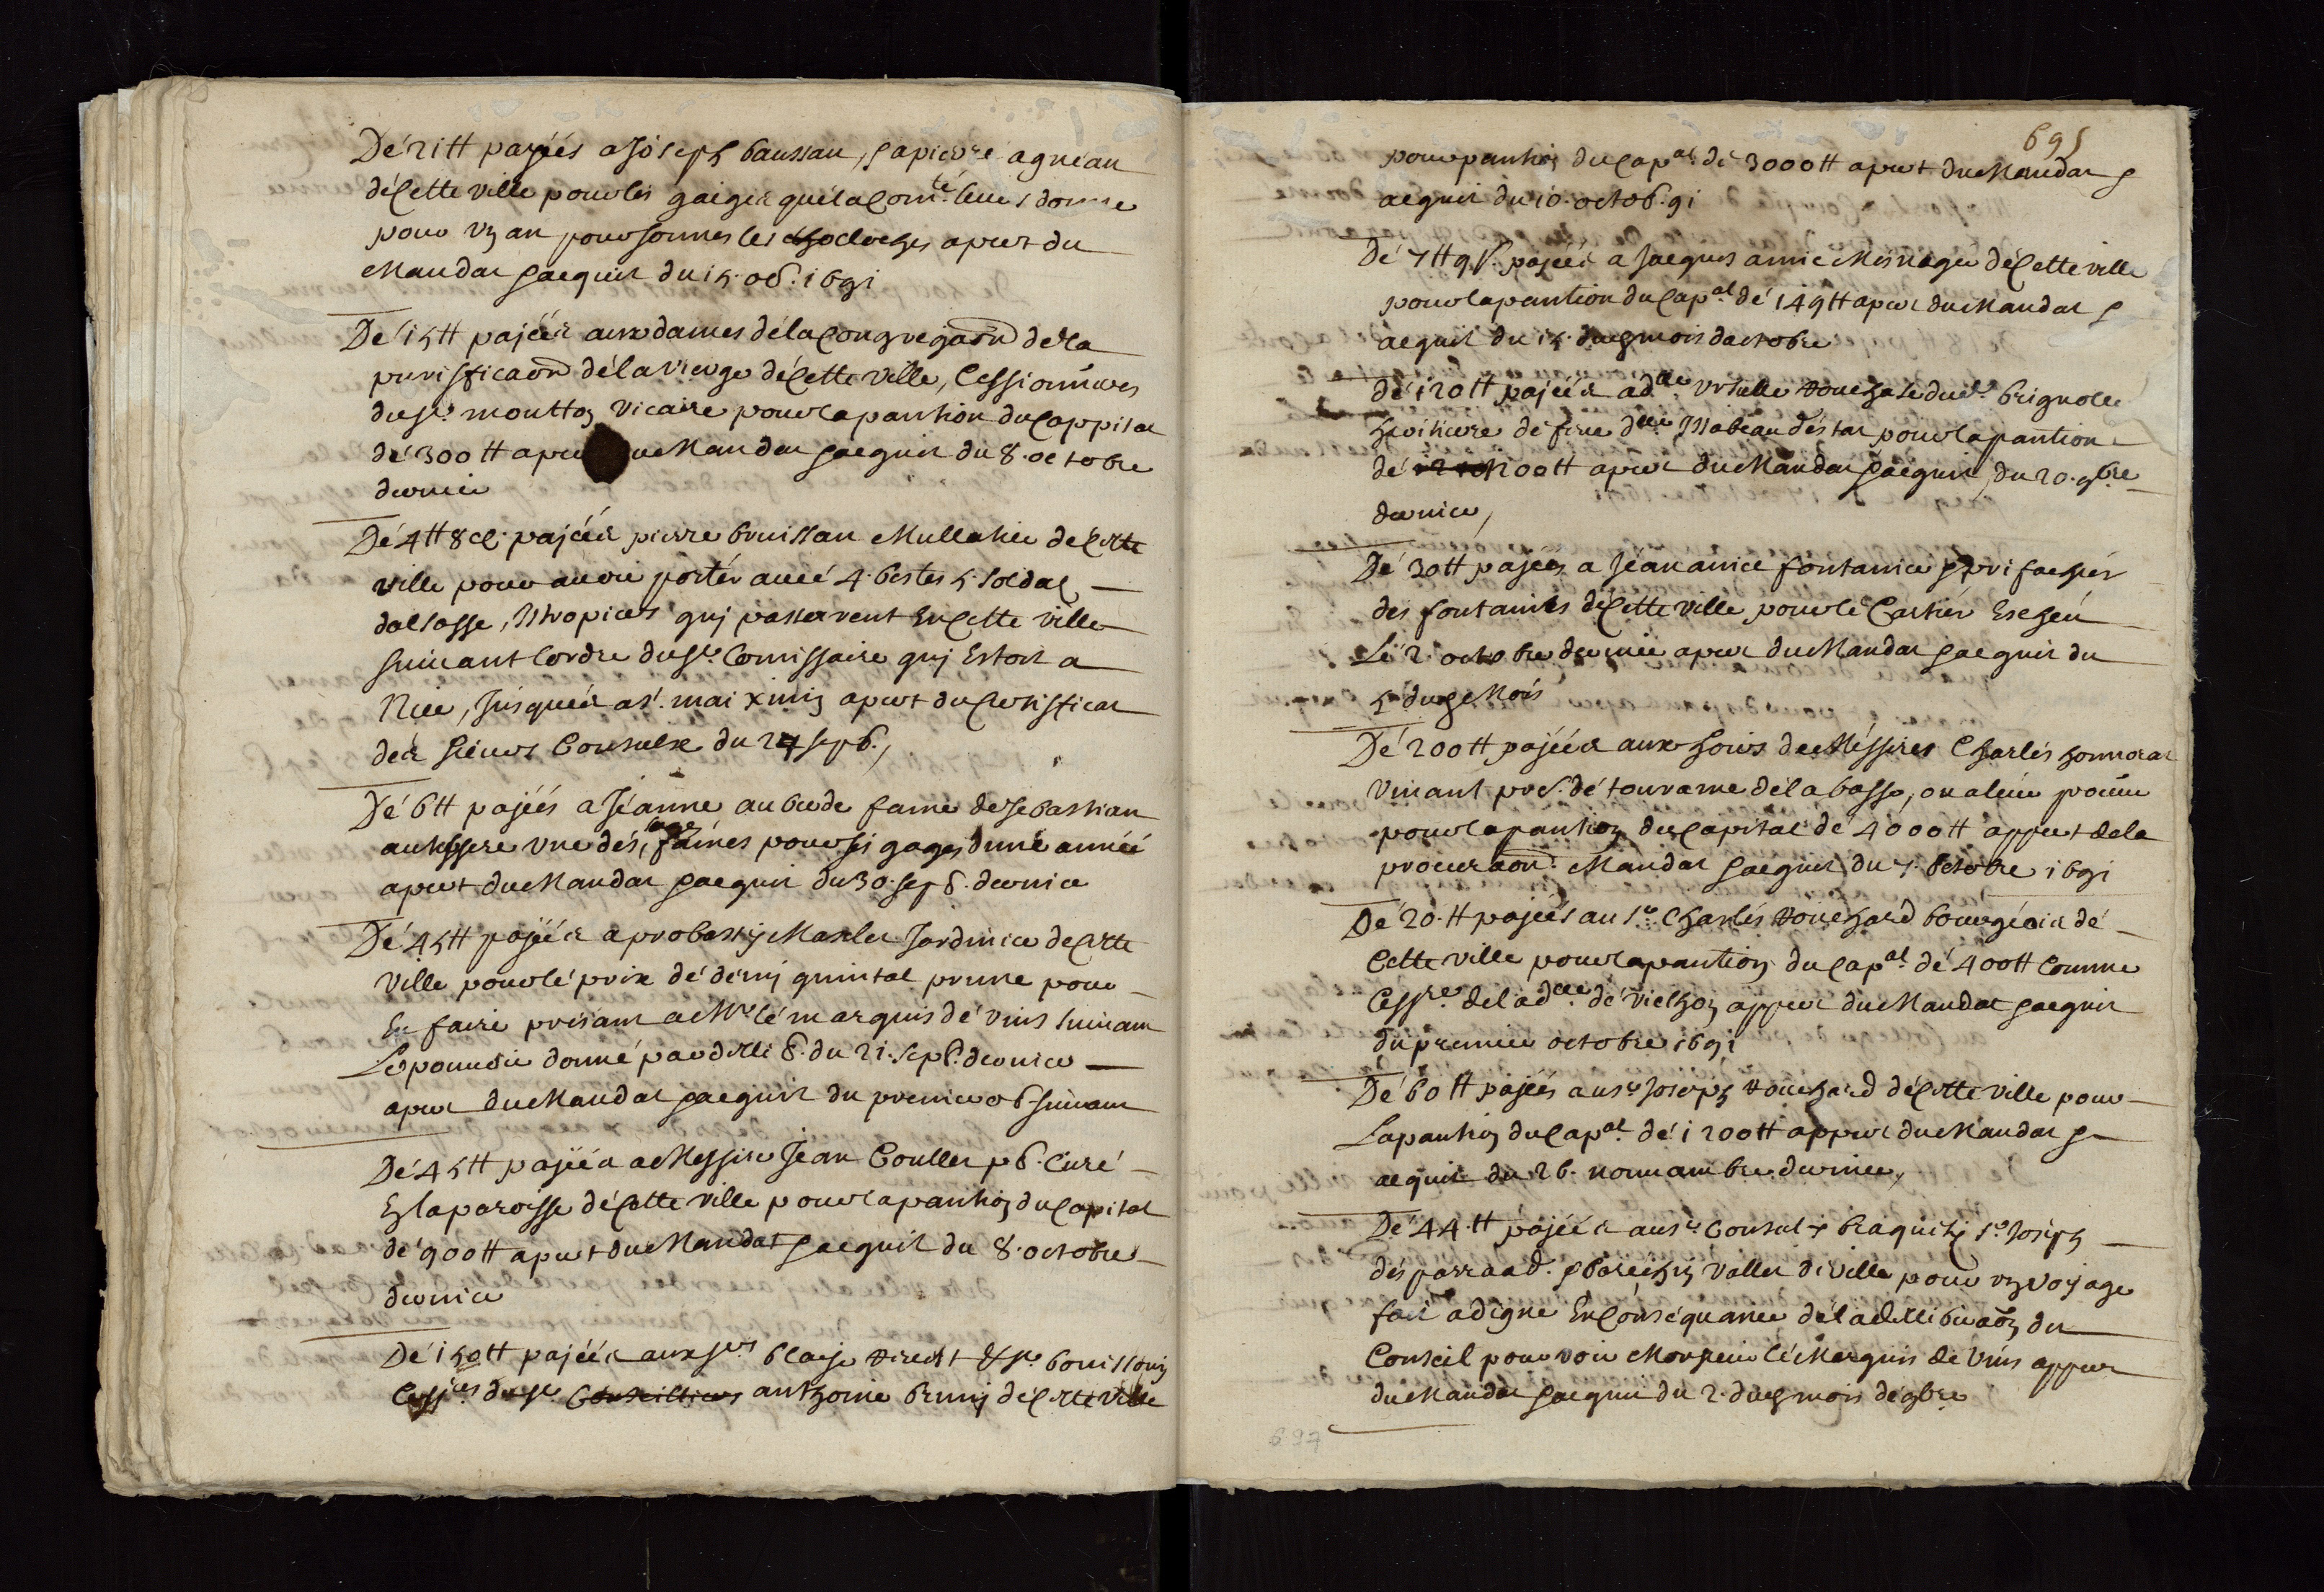 De 21 ₶ payées a Joseph baussan, & a pierre agneau
de Cette ville pour les gaiges que la Com.te leur donne
pour un an pour sonner les clloches apert du
Mandat & aquit du 15. 8b. 1691
De 15 ₶ pajées aux dames de la Congregaõn de la
puriffficaõn de la vierge de Cette ville, Cessionñeres
du sr. moutton vicaire pour la panthion du Cappital
de 300 ₶ aper du Mandat & aquit du 8. octobre
dernier
De 4 ₶ 8 pajées pierre bruissan Mullatier de Cette
ville pour avoir porter avec 4. bestes 5. soldat
dalsasse, Esthropiers quj passerent En Cette ville
suivant Lordre du sr. Comissaire quj Estoit a
Nice, Jusques a st. maiximin apert du Certifficat
des sieurs Consulx du 24 sepb.,
De 6 ₶ pajées a Jeanne aubede fame de sebasthian
authissere une des, sages fames pour ses gages dune année
apert du Mandat & aquit du 30. sepb. dernier
De 45 ₶ pajées a probassy Jardinier de Cette
Ville pour le prix de demj quintal prune pour
En faire presant a Mr. le marquis de vins suivant
Le pouvoir donné par delli b. du 21. sepb. dernier
aper du Mandat & aquit du premier 8b suivant
De 45 ₶ pajées a Messire Jean Coulley pb. Curé
En la paroisse de Cette ville pour la panthion du Capital
de 900 ₶ apert du Mandat & aquit du 8. octobre
dernier
De 150 ₶ pajées aux srs blaise & sr. bouissony
Cessres du sr. Conseilliers anthoine brunj de Cette ville
695
pour panthion du Cap.al de 3000 ₶ apert du Mandat &
aquit du 10. octob. 91
De 7 ₶ 9 s. pajées a Jaques amic Mesnager de Cette ville
pour la pantion du Cap.al de 149 ₶ aper du Mandat &
aquit du 15. dud mois doctobre
De 120 ₶ pajées a dlle. Ursulle du sr. brignolle
heritiere de feue dlle. Isabeau destar pour la pantion
de 1200 ₶ aper du Mandat & aquit, du 20. 9bre
dernier,
De 30 ₶ pajées a Jean amic fontanier & prifachier
des fontaines de Cette ville pour le Cartier Escheu
Le 2. octobre dernier aper du Mandat & aquit du
5 dud Mois
De 200 ₶ pajées aux hoirs de Messires Charles honnorat
vivant pre. de tourame de la basse, on aleur poeuu
pour la panthion du Capital de 4000 ₶ appert de la
procuraõn Mandat & aquit du 7. octobre 1691
De 20. ₶ pajées au sr. Charles bourgeois de
Cette ville pour la pantion du Cap.al de 400 ₶ Comme
Cessre. de la dlle. de vielhon apper du Mandat & aquit
du premier octobre 1691
De 60 ₶ pajées au sr. Joseph de Cette ville pour
La panthion du Cap.al de 1200 ₶ apper du Mandat &
aquit du 26. nouuambre dernier,
De 44. ₶ pajées au sr. Consul braquety sr. Joseph
desparra ad. & vallet de Ville pour un voyage
fait a digne En Consequance de la delliberaõn du
Conseil pour voir Monsieur le Marquis de Vins apper
du Mandat & aquit du 2. dud mois de 9bre
697